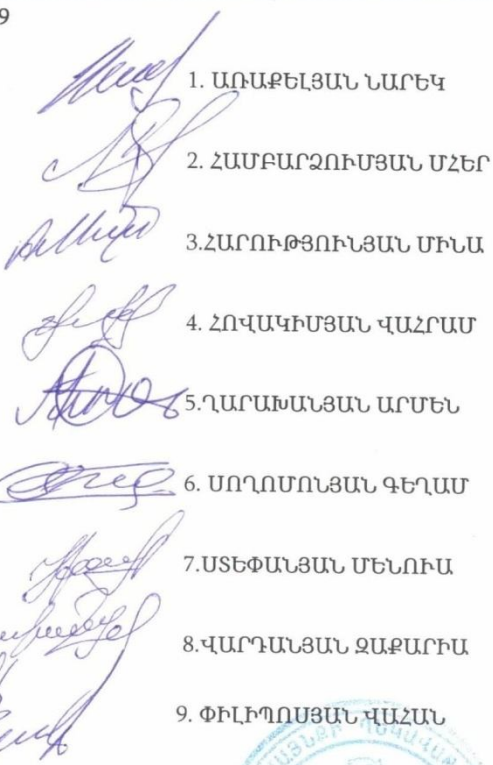 9
1. ԱՌԱՔԵԼՅԱՆ ՆԱՐԵԿ
2. ՀԱՄԲԱՐՁՈՒՄՅԱՆ ՄՀԵՐ
3.ՀԱՐՈՒԹՅՈՒՆՅԱՆ ՄԻՆԱ
4. ՀՈՎԱԿԻՄՅԱՆ ՎԱՀՐԱՄ
5.ՂԱՐԱԽԱՆՅԱՆ ԱՐՄԵՆ
6. ՍՈՂՈՄՈՆՅԱՆ ԳԵՂԱՄ
7.ՍՏԵՓԱՆՅԱՆ ՄԵՆՈՒԱ
8.ՎԱՐԴԱՆՅԱՆ ԶԱՔԱՐԻԱ
9. ՓԻԼԻՊՈՍՅԱՆ ՎԱՀԱՆ